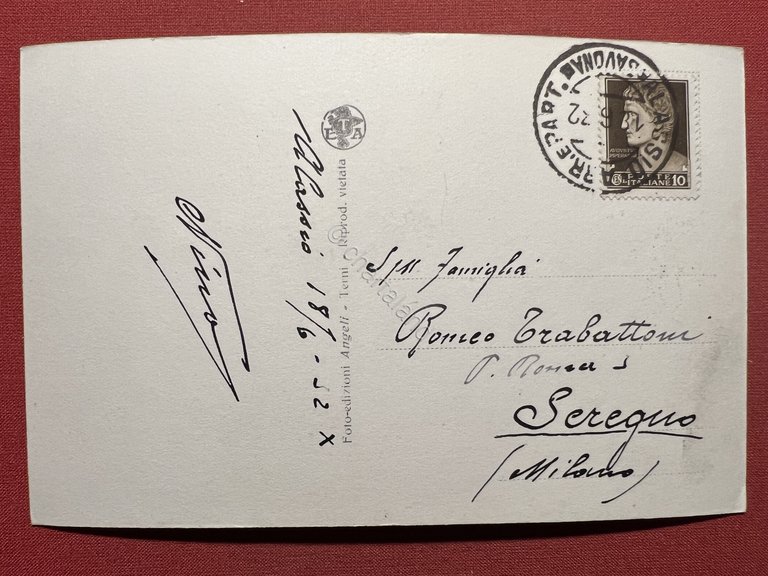 Nino
Alassio 18/6-32 X
ETA
Foto-edizioni Angeli - Terni - Riprod. vietata
© chartaland
ALASSIO
ARR. E PART.
SAVONA
6.32
POSTE
ITALIANE 10
Famiglia
Romeo Trabattoni
P. Roma
Seregno
(Milano)